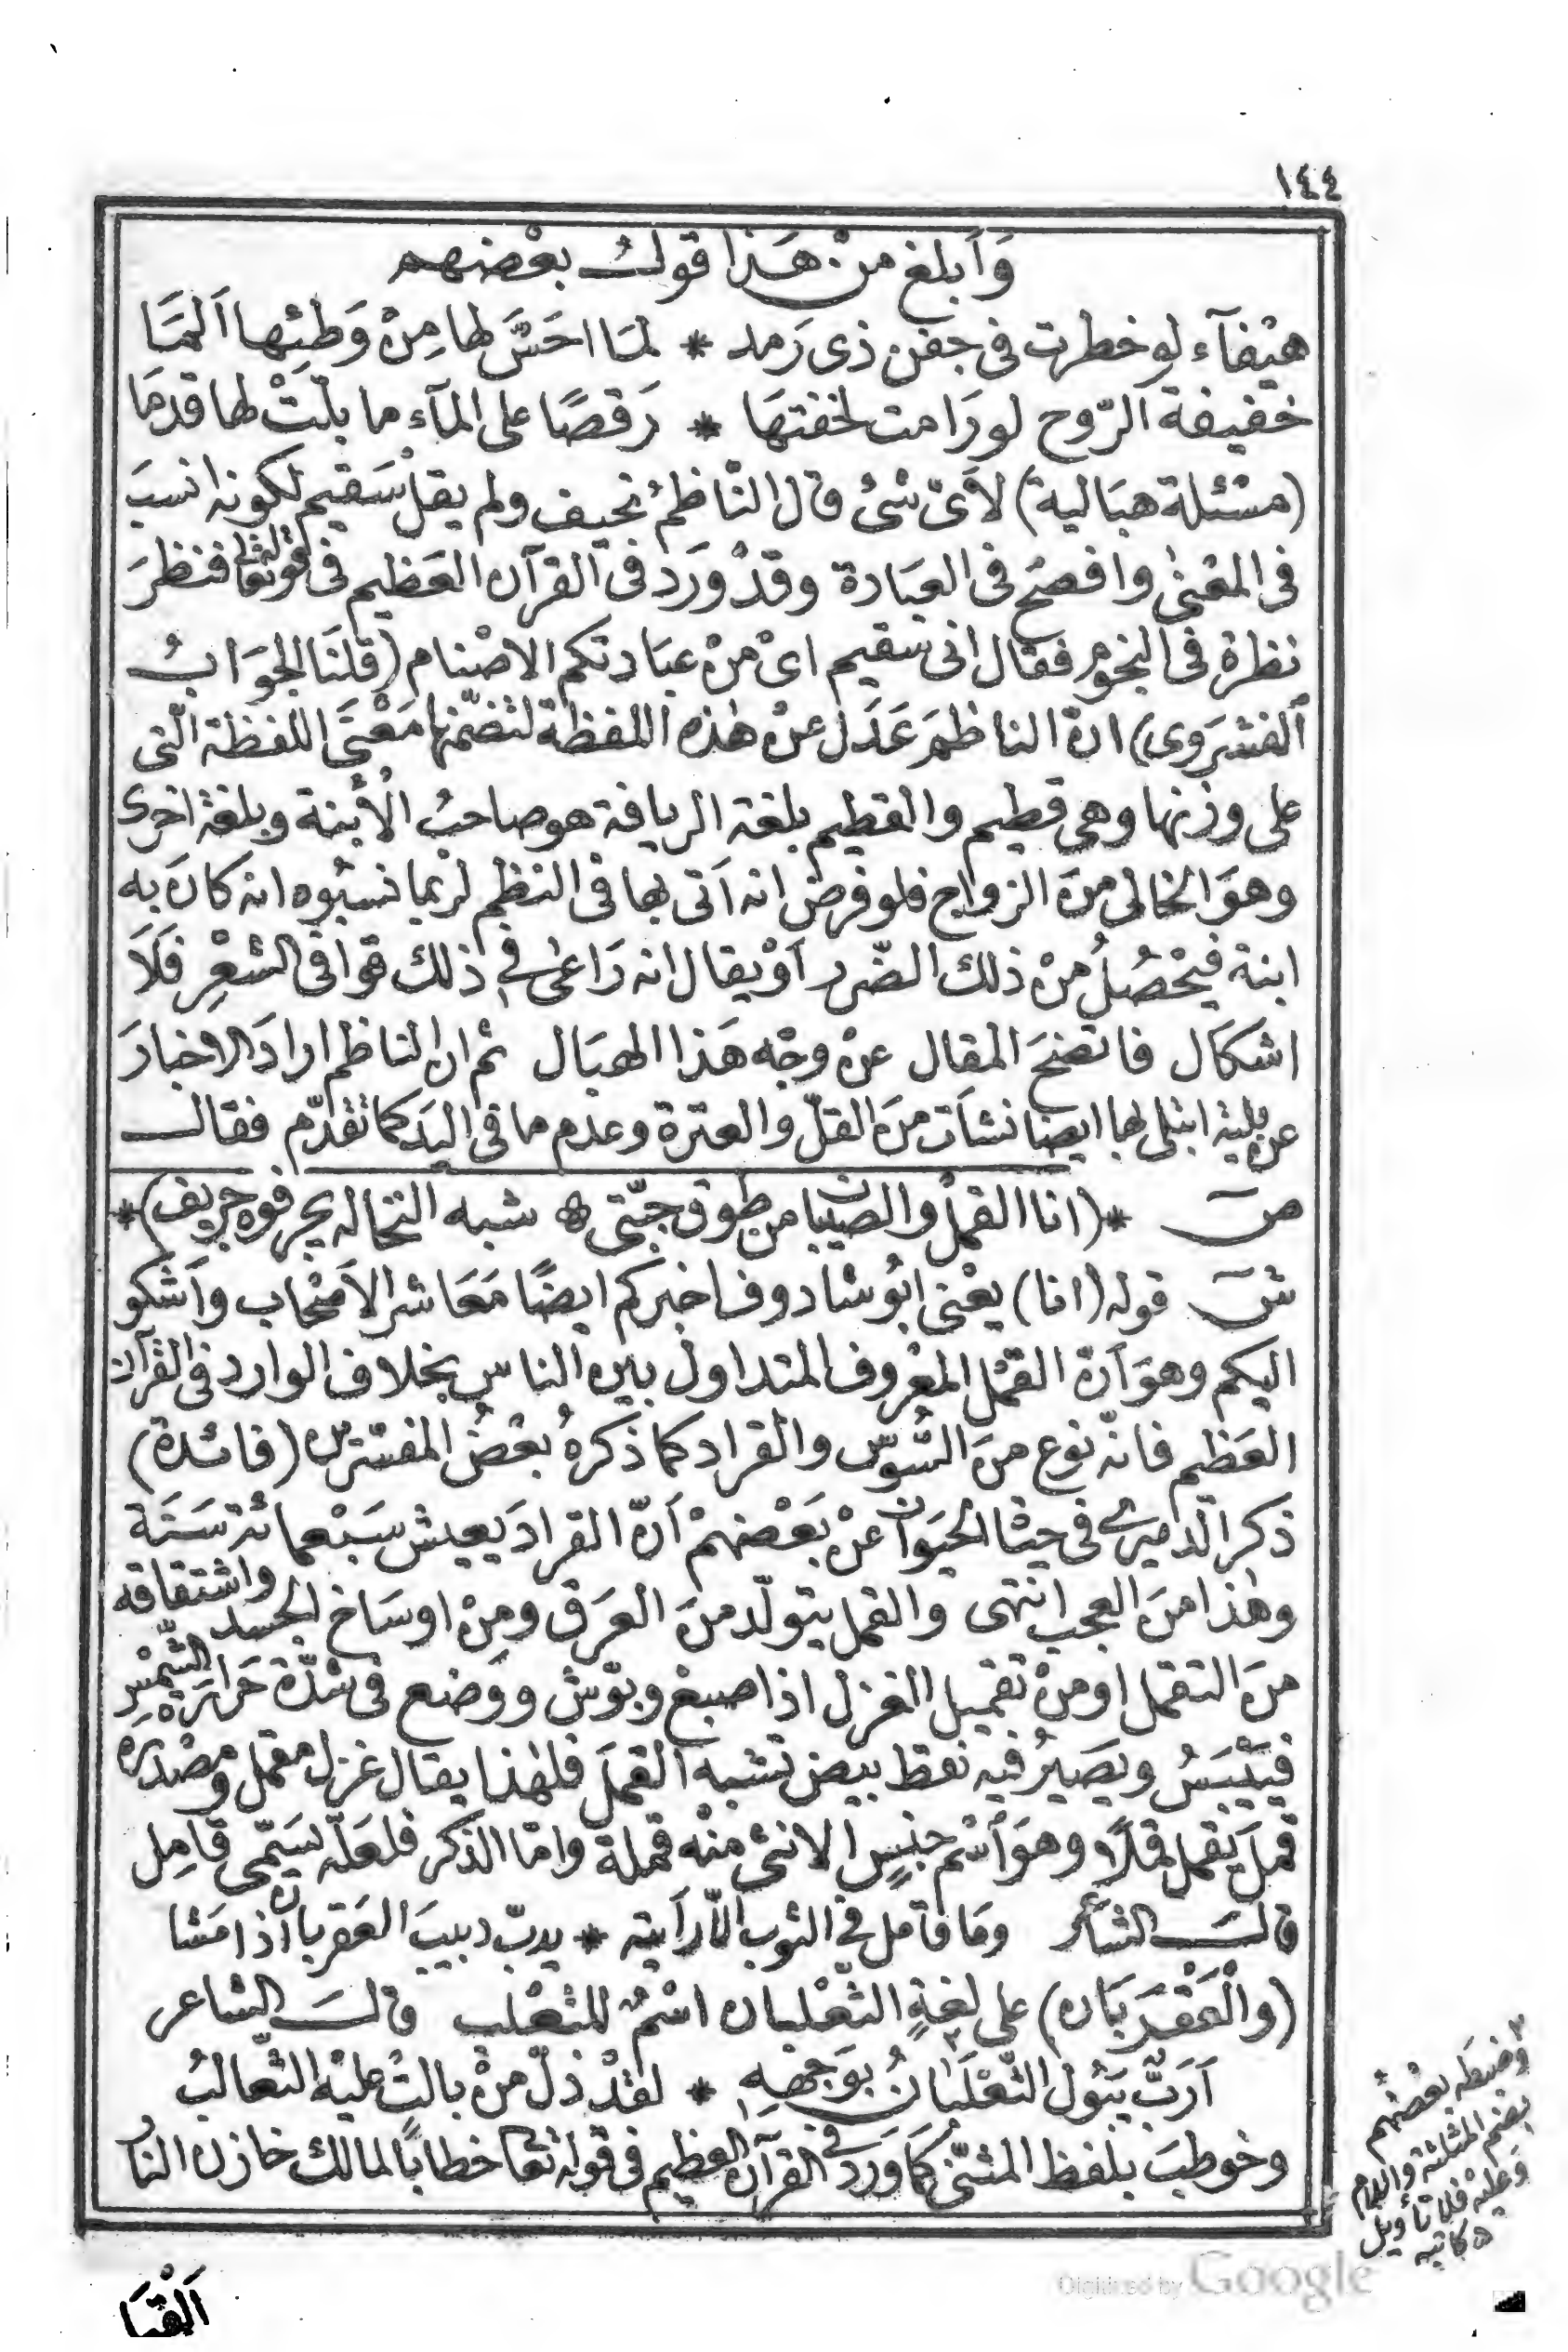 ١٤٤
وَأَبلغ منْ هَذا قولُ بعْضهم
هيْفآء لو خطرت فى جفن ذى رَمد * لمَا احَسَّ لها مِنْ وَطئِها اَلمَا
خفيفة الرّوح لو رَامت لخفتهَا * رَقصًا على المآء ما بلّتْ لها قدمَا
(مسْئلة هبَالية) لاَىّ شىْ قال النّاظمُ نحيف ولم يقل سَقيم لكونه انسبَ
فى المعْنىٰ وافصَح فى العبَارة وقدْ وَرَد فى القرآن العَظيم فى قوله تعالى فنظرَ
نظرة فى النجوم فقال انى سقيم اىْ منْ عبَادتكم الاصْنام (قلنَا الجوَابُ
الفشرَوى) انّ الناظمَ عَدَل عنْ هٰذه اللفظة لتضمّنها مَعْنَى اللفظة الّتى
على وزنها وهى قطيم والقطيم بلغة الريافة هو صاحبُ الاُبْنة وبلغة اخرى
وهوَ الخالى منَ الزواج فلو فرض انه اَتى بها فى النظم لربما نسبُوه انه كانَ به
ابنة فيحْصُلُ منْ ذلك الضّرر اَوْ يقال انه رَاعٰى فى ذلك قوافى الشعْرِ فَلَاَ
اشكال فاتضحَ المقال عنْ وجْه هَذا الهبَال ثم ان الناظم ارادَ الاخبارَ
عن بلية ابتلى بها ايضًا نشاَت منَ القلّ والعترة وعدم ما فى اليَد كما تقدّم فقال
صۤ *(انا القمل والصيبان من طوق جبّتى * شبه النخاله يجرفوه جريف)*
شۤ قوله (انا) يعْنى ابُو شادوف اخبركم ايضًا مَعَاشر الاَصْحاب وَاَشكو
اليكم وهوَ اَنّ القمْل المعْروف المتداول بين الناس بخلاف الوارد فى القرآن
العَظيم فانّه نوع منَ السُّوس والقراد كما ذكرهُ بعْضُ المفسّرين (فائدة)
ذكر الدّميرى فى حيٰاة الحيَوان عنْ بَعْضهمْ اَنّ القرادَ يعيش سَبْعمائة سَنَة
وهٰذا منَ العجب انتهى والقمل يتولّد منَ العرَق ومِنْ اوسَاخ الجسد واشتقاقه
منَ التقمل او منْ تقميل الغزل اذا صبغ وبوّش ووضع فى شدّة حَرارة الشّمْسِ
فيَيْبَسُ ويصَيرُ فيه نقط بيض تشبه القملَ فلهٰذا يقال غزل مقمل ومصْدره
قملَ يقمل قملًا وهوَ اَسْم جنسٍ الانثىٰ منْه قملة وامّا الذكر فلعَلّه يسَمّى قامِل
قالَ الشاعر وَما قامل فى الثوب الاّ رأيته * يدبّ دبيبَ العَقربان اذا مَشا
(والْعَقْرَبَان) على لغةِ الثّعْلبان اسْمٌ للثعْلب قالَ الشاعر
اَرَبٌّ يَبُول الثّعْلَبَانُ بوَجْههِ * لقدْ ذلّ منْ بالتْ عليْه الثّعَالبُ
وخوطبَ بلفظ المثنّى كمَا وَرَدَ فى القرآن العظيم فى قوله تعالى خطابًا لمالك خازن النار
وضبطه بعْضهُم
بضم المثلثة واللام
وَعليْه فلا تأويل
اه كاتبه
اَلْقيَا
Digitized by Google